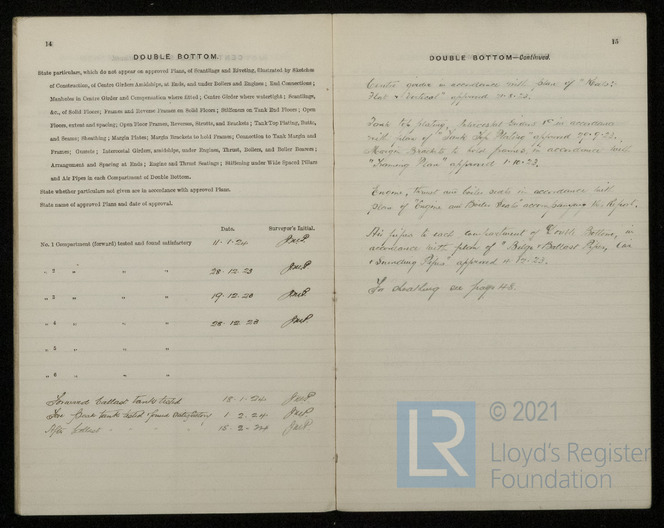 14
DOUBLE BOTTOM.
State particulars, which do not appear on approved Plans, of Scantlings and Riveting, illustrated by Sketches
of Construction, of Centre Girders Amidships, at Ends, and under Boilers and Engines; End Connections;
Manholes in Centre Girder and Compensation where fitted; Centre Girder where watertight; Scantlings,
&c., of Solid Floors; Frames and Reverse Frames on Solid Floors; Stiffeners on Tank End Floors; Open
Floors, extent and spacing; Open Floor Frames, Reverses, Struts, and Brackets; Tank Top Plating, Butts,
and Seams; Sheathing; Margin Plates; Margin Brackets to hold Frames; Connection to Tank Margin and
Frames; Gussets; Intercostal Girders, amidships, under Engines, Thrust, Boilers, and Boiler Bearers;
Arrangement and Spacing at Ends; Engine and Thrust Seatings; Stiffening under Wide Spaced Pillars
and Air Pipes in each Compartment of Double Bottom.
State whether particulars not given are in accordance with approved Plans.
State name of approved Plans and date of approval.
Date. Surveyor's Initial.
No. 1 Compartment (forward) tested and found satisfactory 11.1.24
" 2 " " " 28.12.23
" 3 " " " 19.12.23
" 4 " " " 28.12.23
" 5 " " "
" 6 " " "
Forward ballast tanks tested 18.1.24
Fore Peak tank tested & found satisfactory 1.2.24
After ballast " " " 15.2.24
15
DOUBLE BOTTOM—Continued.
Centre girder in accordance with plan of "
Flat & Vertical" approved
Tank Top Plating, Intercostal Girders &c in accordance
with plan of "Tank Top Plating" approved
Margin Brackets to hold frames in accordance with
"Framing Plan" approved 1.10.23.
Engine, thrust and boiler seats in accordance with
plan of "Engine and Boiler Seats" accompanying this Report.
Air pipes to each compartment of Double Bottom, in
accordance with plan of "Bilge & Ballast Pipes, Air
& Sounding Pipes" approved
For sheathing see page 48.
LR
© 2021
Lloyd's Register
Foundation